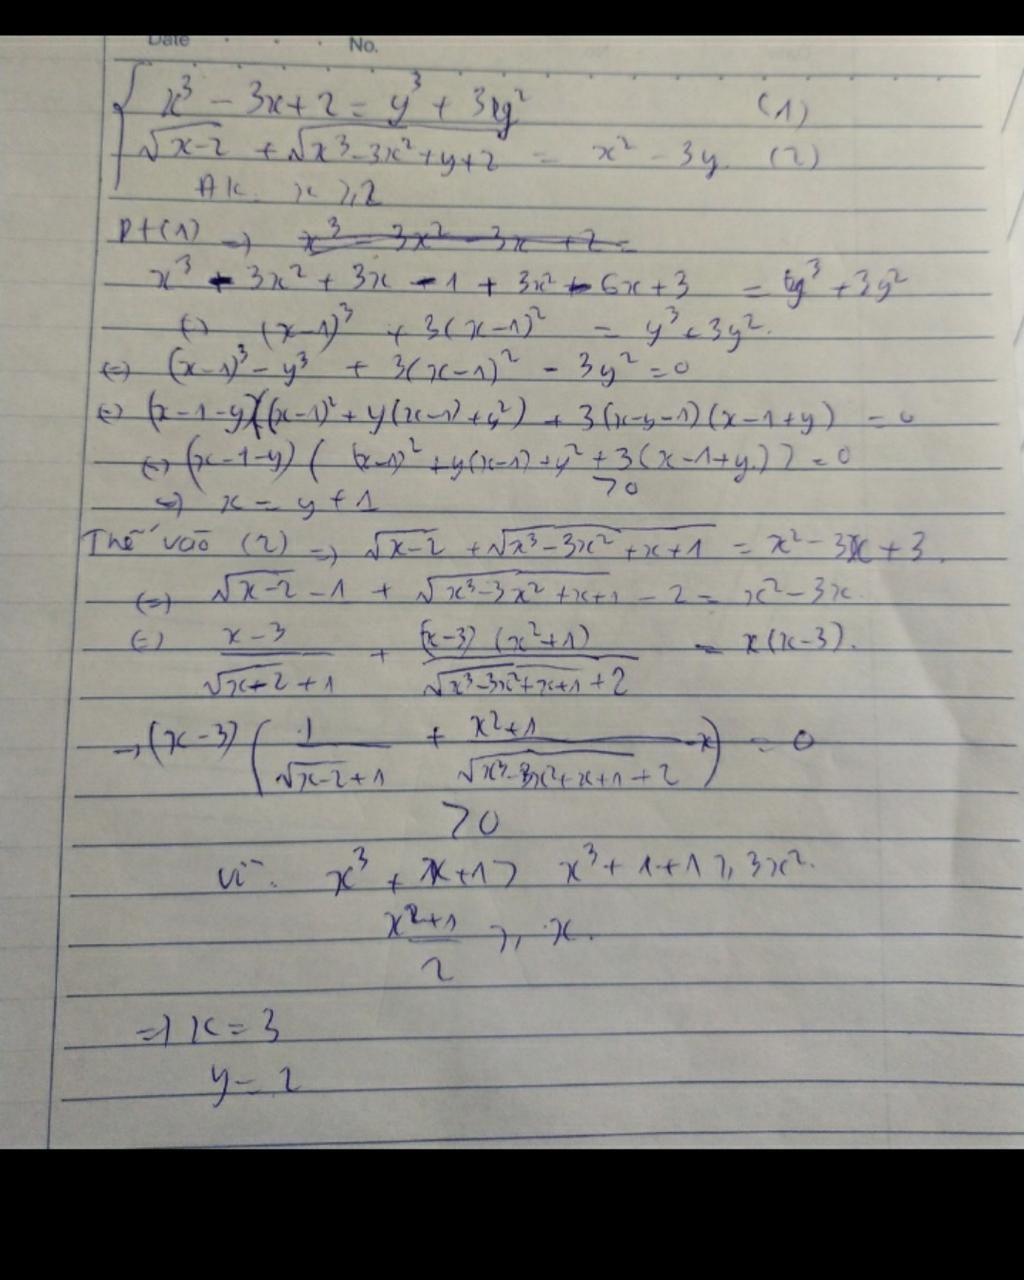 Date No.
x³ - 3x + 2 = y³ + 3y² (1)
√(x-2) + √(x³-3x²+y+2) = x² - 3y (2)
ĐK. x ≥ 2
pt(1) ⇒ x³ - 3x² - 3x + 2 =
x³ - 3x² + 3x - 1 + 3x² - 6x + 3 = y³ + 3y²
⇔ (x-1)³ + 3(x-1)² = y³ + 3y².
⇔ (x-1)³ - y³ + 3(x-1)² - 3y² = 0
⇔ (x-1-y)((x-1)² + y(x-1) + y²) + 3(x-y-1)(x-1+y) = 0
⇔ (x-1-y)( (x-1)² + y(x-1) + y² + 3(x-1+y)) = 0
>0
⇒ x = y + 1
Thế vào (2) ⇒ √(x-2) + √(x³-3x²+x+1) = x² - 3x + 3.
⇔ √(x-2) - 1 + √(x³-3x²+x+1) - 2 = x² - 3x.
⇔ (x-3)/(√(x+2)+1) + (x-3)(x²+1)/(√(x³-3x²+x+1)+2) = x(x-3).
→ (x-3)(1/(√(x-2)+1) + (x²+1)/(√(x³-3x²+x+1)+2) - x) = 0
>0
vì. x³ + x+1 > x³+1+1 ≥ 3x².
(x²+1)/2 ≥ x.
⇒ x = 3
y = 2